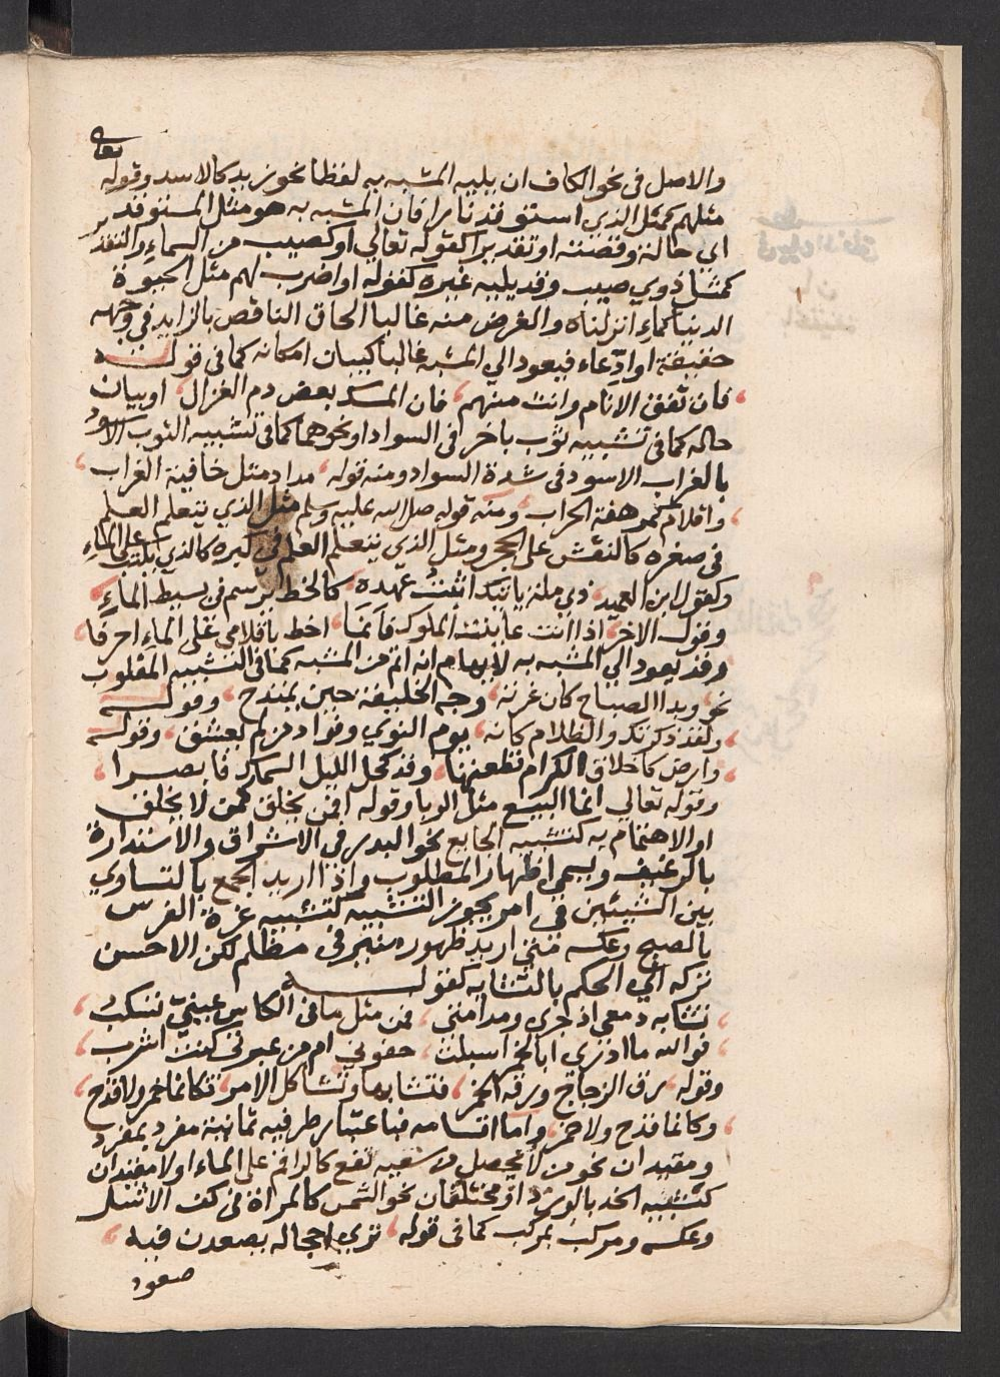 تعالى
والاصل فى نحو الكاف ان يليه المشبه به لفظا نحو زيد كالاسد وقوله
مثلهم كمثل الذي استوقد نارا فان المشبه به هو مثل المستوقد
اي حالته وقصته او تقديرا كقوله تعالي او كصيب من السماء والتقدير
كمثل ذوي صيب وقد يليه غيره كقوله واضرب لهم مثل الحيوة
الدنيا كماء انزلناه والغرض منه غالبا الحاق الناقص بالزايد في وجهه
حقيقة او ادّعاء فيعود الي المشبه غالبا كبيان امكانه كما في قولـــه
فان تفق الانام وانت منهم، فان المسك بعض دم الغزال، او بيان
حاله كما فى تشبيه ثوب باخر فى السواد او نحوهما كما فى تشبيه الثوب الاسود
بالغراب الاسود فى شدة السواد ومنه قوله، مداد مثل خافية الغراب،
، واقلام كمرهفة الحراب، ومنه قوله صلى الله عليه وسلم مثل الذي يتعلم العلم
فى صغره كالنقش على الحجر ومثل الذي يتعلم العلم في كبره كالذي يكتب على الماء
وكقول ابن العميد، ذي ملة ياتيك اثبت عهده، كالخط يرسم في بسيط الماء،
وقول الاخر، اذا انت عاتبت الملوك فانما، اخط باقلامي على الماء احرفا،
وقد يعود الي المشبه به لايهام انه اتم من المشبه كما فى التشبيه المقلوب
نحو، وبدا الصباح كان غرته، وجه الخليفة حين يمتدح، وقولـــه
، ولقد ذكرتك والظلام كانه، يوم النوي وفواد من لم يعشق، وقولـــه
، وارض كاخلاق الكرام قطعتها، وقد كحل الليل السماك فابصرا،
وقوله تعالي انما البيع مثل الربا وقوله افمن يخلق كمن لا يخلق
او الاهتمام به كتشبيه الجايع نحو البدر في الاشراق والاستدارة
بالرغيف ويسمي اظهار المطلوب واذا اريد الجمع بالتساوي
بين الشيئين في امر يجوز التشبيه كتشبيه غرة الفرس
بالصبح وعكسه متي اريد ظهور منير في مظلم لكن الاحسن
تركه الي الحكم بالتشابه كقولـــه
، تشابه دمعي اذ جري ومدامتي، فمن مثل ما في الكاس عيني تسكب،
، فوالله ما ادري ابالخمر اسبلت، جفوني ام من عبرتي كنت اشرب،
وقوله، رق الزجاج ورقة الخمر، فتشابها وتشاكل الامر، فكانما خمر ولا قدح،
، وكانما قدح ولا خمر، واما اقسامه فباعتبار طرفيه ثمانية مفرد بمفرد
ومقيدان نحو من لا يحصل من سعيه نفع كالراقم على الماء اولا مقيدان
كتشبيه الخد بالورد او مختلفان نحو الشمس كالمراة فى كف الاشل
وعكسه ومركب بمركب كما فى قوله، تري احجاله يصعدن فيه،
صعود